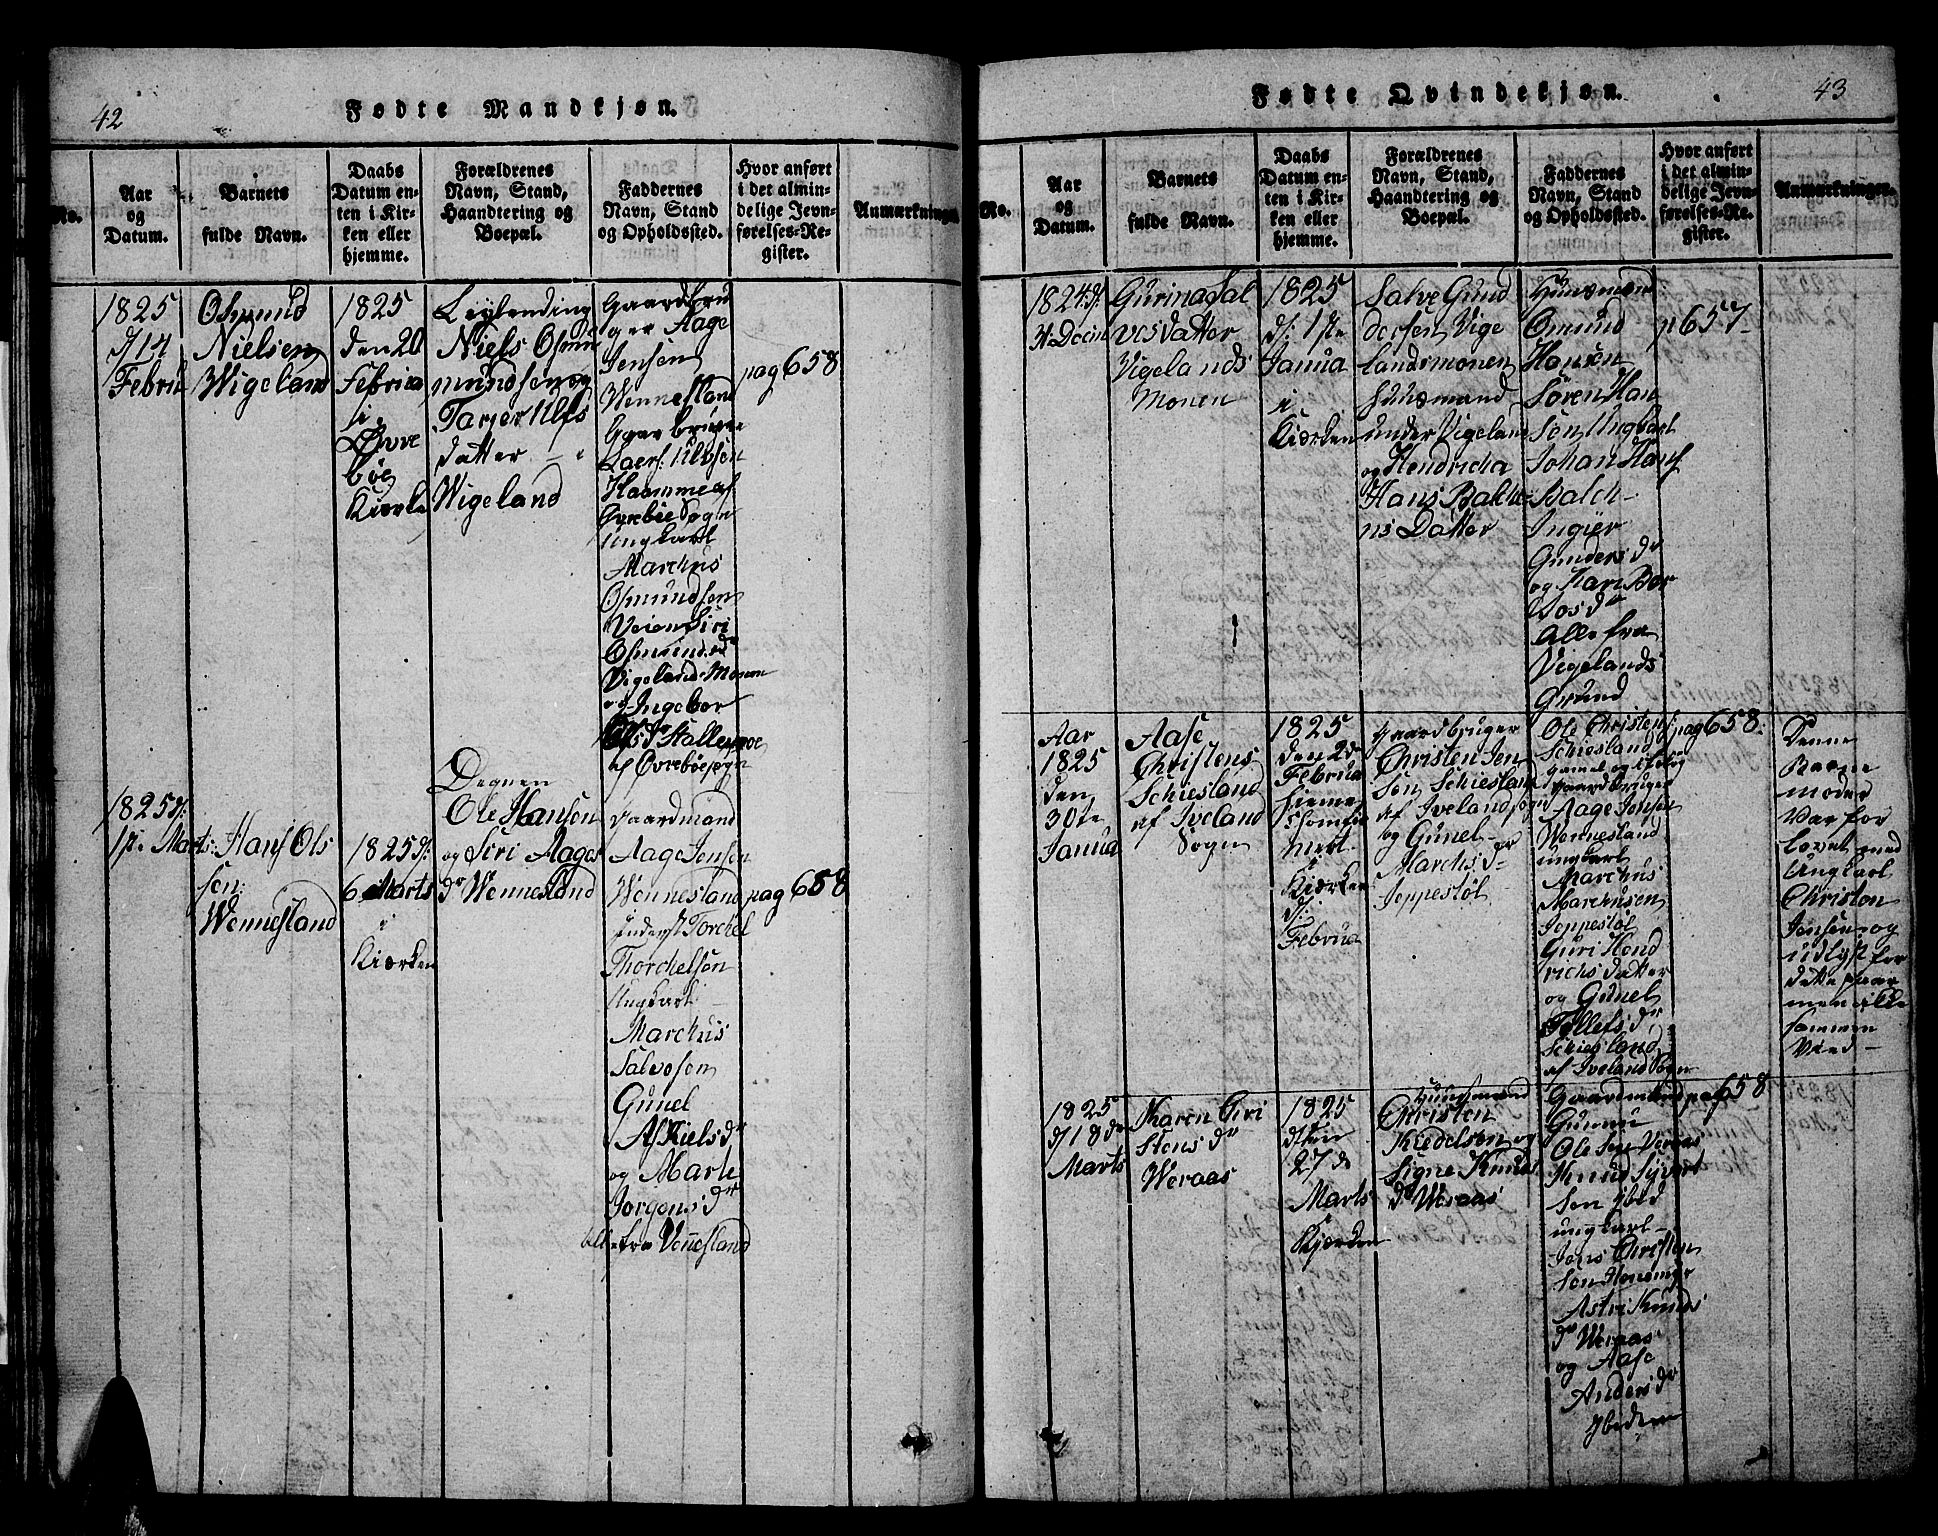 42
Fødte Mandkjøn.
No.
Aar
og
Datum.
Barnets
fulde Navn.
Daabs
Datum en-
ten i Kir-
ken eller
hjemme.
Forældrenes
Navn, Stand,
Haandtering og
Boepæl.
Faddernes
Navn, Stand
og Opholdssted.
Hvor anført
i det almin-
delige Jevn-
førelses-Re-
gister.
Anmærkninger
1825
d/14
Febru
Osmund
Nielsen
Wigeland
1825
den 20
Februa
i
Øvre
bøe
Kiærke
Leylending
Niels Osmu
mundsen og
Tarjer Ulfs
datter
Wigeland
Gaardbru
ger Aage
Jensen
Wennesland
Gaarbruge
Laers Ulvsen
Haamme af
Øvrebøe Sogn
Ungkarl
Marchus
Osmundsen
Veien Siri
Osmunds dr
Vigelands Monen
og Ingebor
Ols dr Stallemoe
af Øvrebøesogn
pag 658
1825 d:
1te Marts
Hans Ols
sen:
Wennesland
1825 d:
6 Marts
i
Kiærken
Degnen
Ole Hansen
og Siri Aages
dr Wennesland
Gaardmand
Aage Jensen
Wennesland
Inderst Torchel
Thorchelsen
Ungkarl
Marchus
Salvesen
Gunel
Af Kiels dr
og Marte
Jorgens dr
alle fra Vennesland
pag 658
43
Fødte Qvindekjøn.
No.
Aar
og
Datum.
Barnets
fulde Navn.
Daabs
Datum en-
ten i Kir-
ken eller
hjemme.
Forældrenes
Navn, Stand,
Haandtering og
Boepæl.
Faddernes
Navn, Stand
og Opholdssted.
Hvor anført
i det almin-
delige Jevn-
førelses-Re-
gister.
Anmærkninger.
1824 d:
Decm
Gurina Sal
ves datter
Vigelands
Monen
1825
d: 1te
Janua
i
Kiærken
Salve Gund
dersen Vige
landsmonen
Huusmand
under Vigeland
og Hendricha
Hans Balche
ns Datter
Huusmand
Omund
Hansen
Søren Han
sen Ungkarl
Johan Hans
Balch
Ingier
Gunders dr
og Kari Ber
Alle fra
Vigelands
Grund
p 657
Aar
1825
den
30te
Janua
Aase
Christens
Schiesland
af Iveland
Sogn
1825
den 2d
Februa
hiemme
Kiærken
d:
Februa
Gaardbruger
Christen Jen
sen Schiesland
af Iveland sogn
og Gunel
Marchs dr
Joppestøl
Ole Christens:
Schiesland
Gaardbruger
Aage Jensen
Wennesland
ungkarl
Marchus
Marchusen
Joppestøl
Guri Hend
richs datter
og Gunel
Tollefs dr
Schiesland
af Iveland Sogn
pag 658:
Denne
Barns
moder
Var for
lovet med
Ungkarl
Christen
Jensen og
udlyst for
dette par
men ikke
sammen
Vied
1825
d/18 de
Marts
Karen Chri
stens dr
Weraas
1825
den
27 de
Marts
Kjærken
Huusmand
Christen
Kiedelsen og
Signe Knuds
dr Weraas
Gaardmand
Gunnu
Ole Sen Veraas
Knud Syvert
Sen Ibid
ungkarl
Jens Christen
sen
Astri Knuds
dr Weraas
og Aase
Anders dr
Ibidem
pag 658